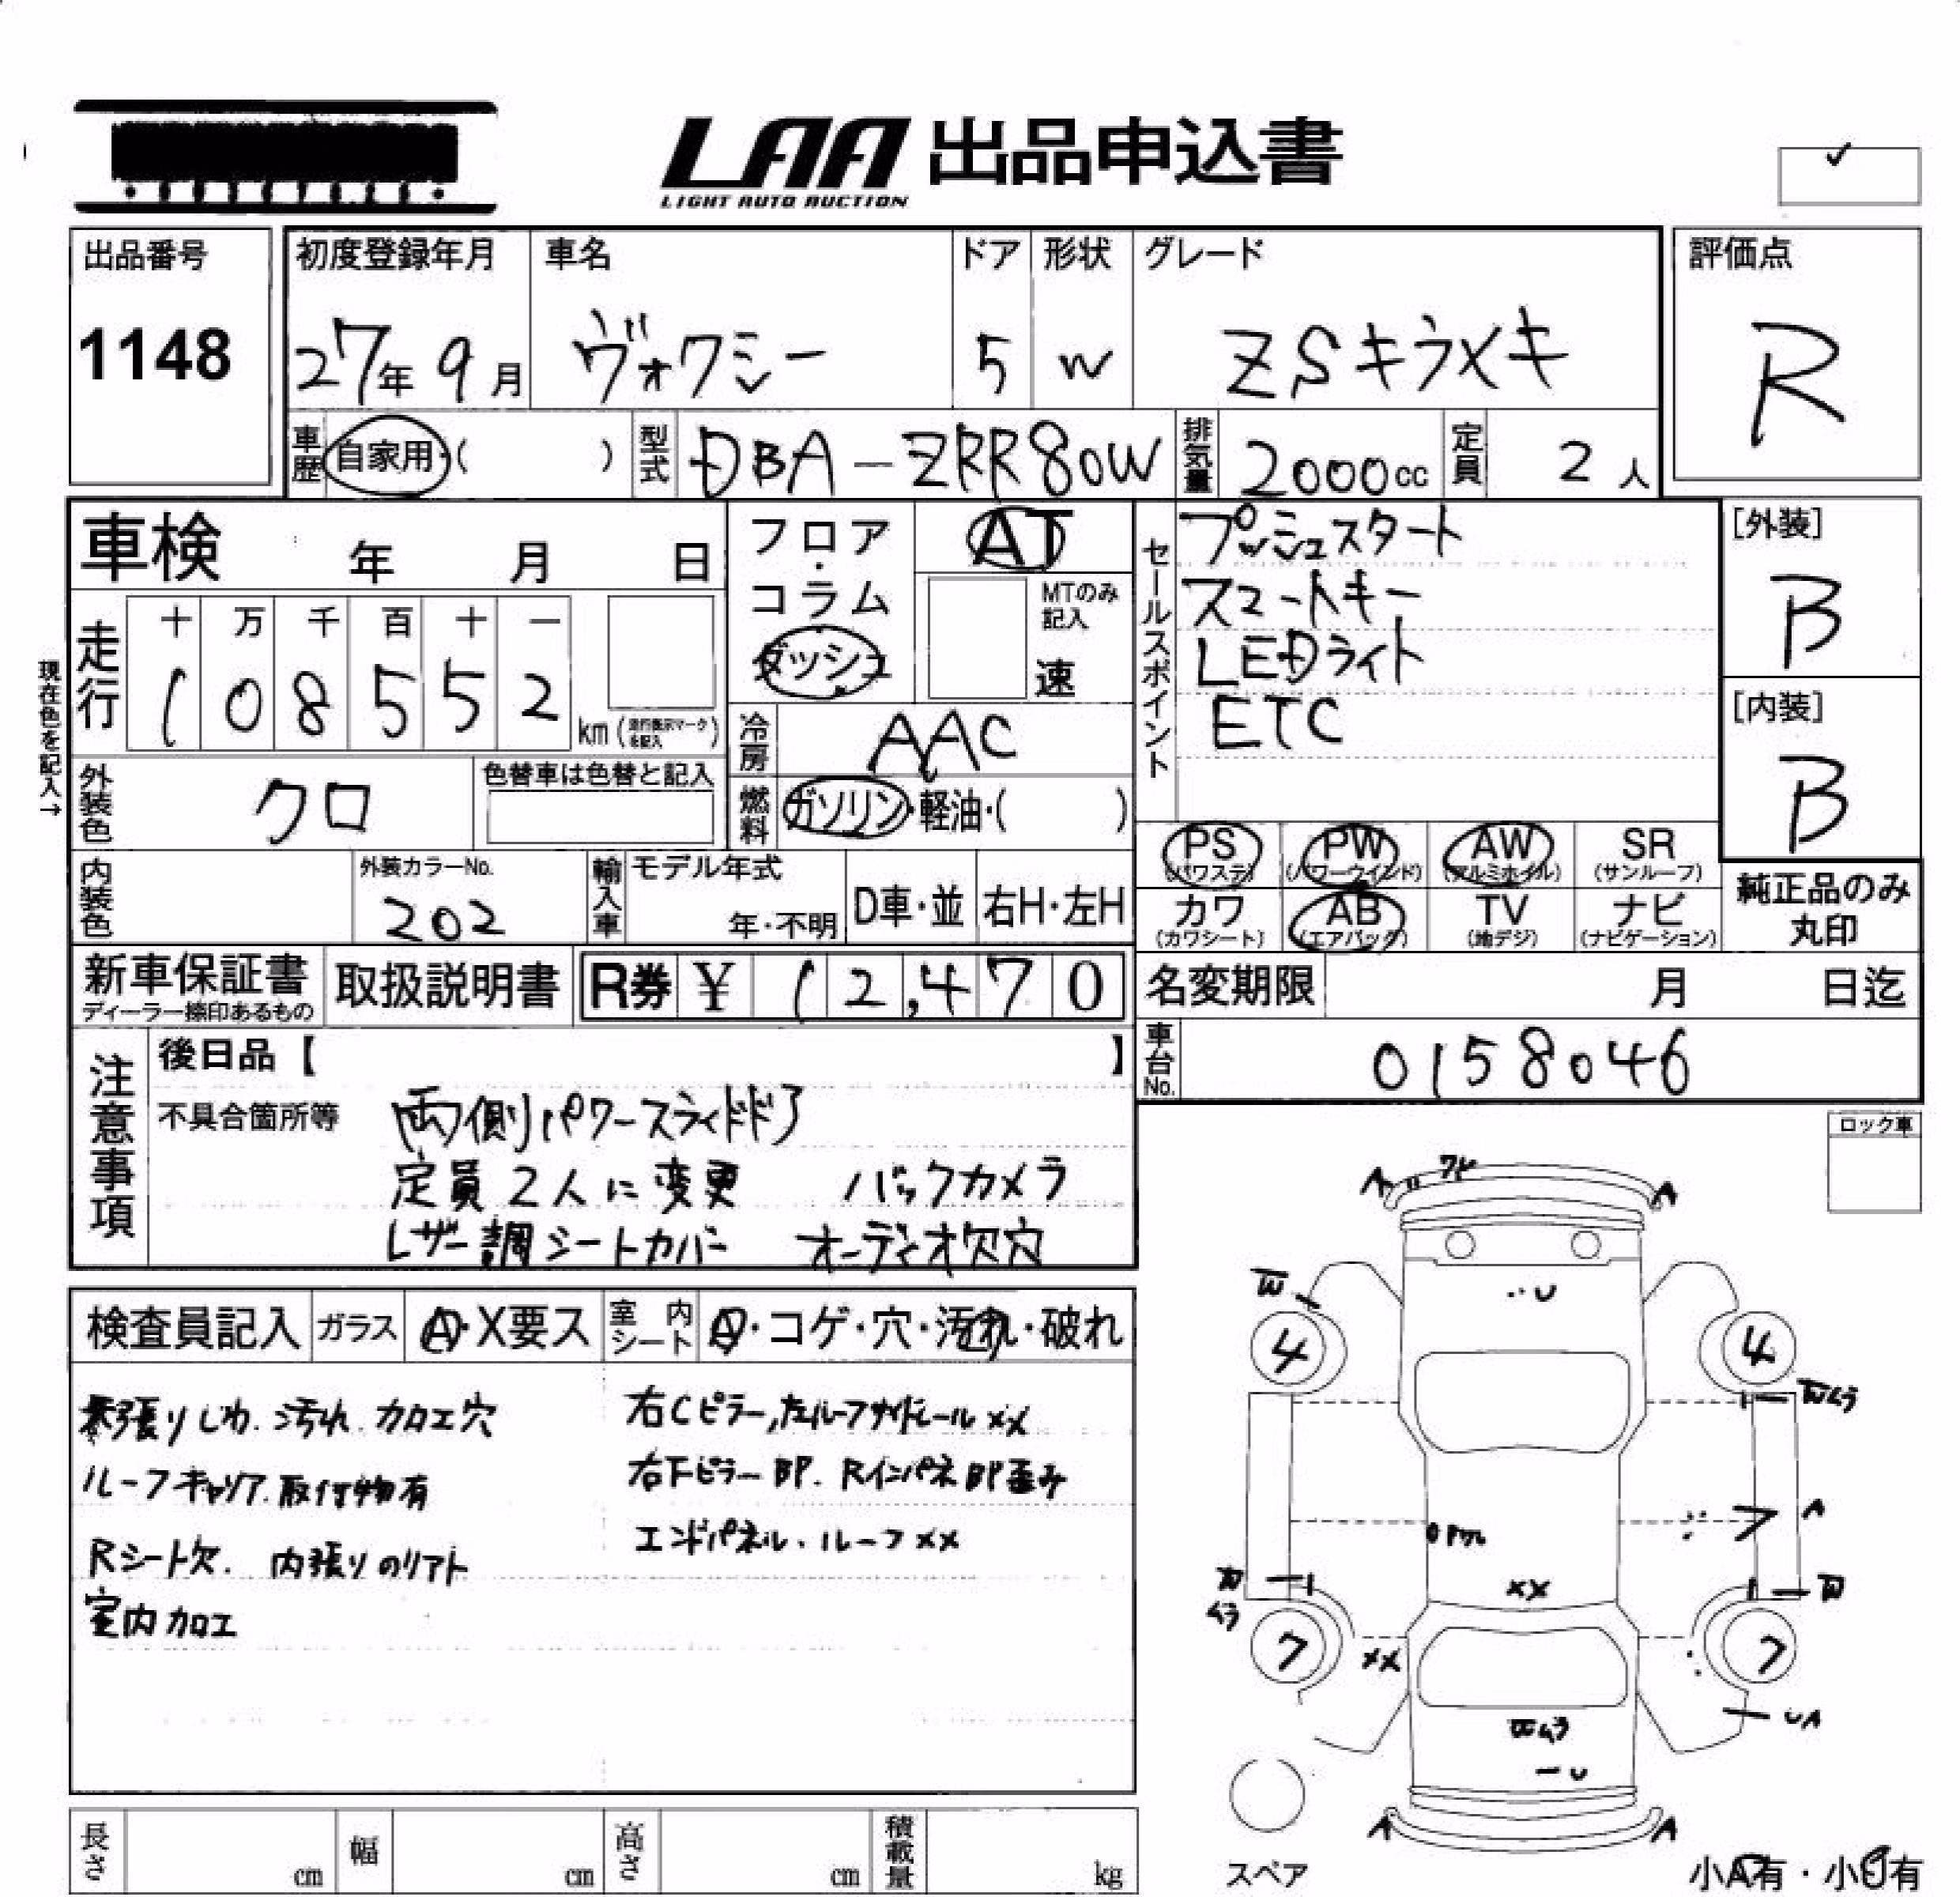 LAA 出品申込書
LIGHT AUTO AUCTION
出品番号
1148
初度登録年月
27年 9月
車名
ヴォクシー
ドア
5
形状
W
グレード
ZSキラメキ
評価点
R
車歴 自家用・( )
型式 DBA-ZRR80W
排気量 2000cc
定員 2人
車検 年 月 日
フロア・コラム
ダッシュ
AT
MTのみ記入
速
セールスポイント
プッシュスタート
スマートキー
LEDライト
ETC
[外装]
B
[内装]
B
現在色を記入→
走行
十 万 千 百 十 一
1 0 8 5 5 2 km
冷房 AAC
外装色 クロ
色替車は色替と記入
燃料 ガソリン・軽油・( )
PS (パワステ) PW (パワーウインド) AW (アルミホイル) SR (サンルーフ)
カワ (カワシート) AB (エアバック) TV (地デジ) ナビ (ナビゲーション)
純正品のみ
丸印
内装色
外装カラーNo.
202
輸入車 モデル年式
年・不明
D車・並 右H・左H
新車保証書
ディーラー捺印あるもの
取扱説明書
R券 ¥ 12,470
名変期限 月 日迄
車台No. 0158046
注意事項
後日品【 】
不具合箇所等
両側パワースライドドア
定員2人に変更 バックカメラ
レザー調シートカバー オーディオ欠穴
ロック車
検査員記入 ガラス A・X要ス 室内シート A・コゲ・穴・汚れ・破れ
張りしわ.汚れ.カロエ穴
ルーフキャリア.取付物有
Rシート欠. 内張りのリアト
室内カロエ
右Cピラー,左ルーフサイドレールxx
右下ピラーBP. RインパネBP歪み
エンドパネル.ルーフxx
A A
W
U
4 4
Wムラ
7 A
xx
W
ムラ
7 7
xx
UA
Wムラ
U
A A
スペア
小A有・小U有
長さ cm 幅 cm 高さ cm 積載量 kg